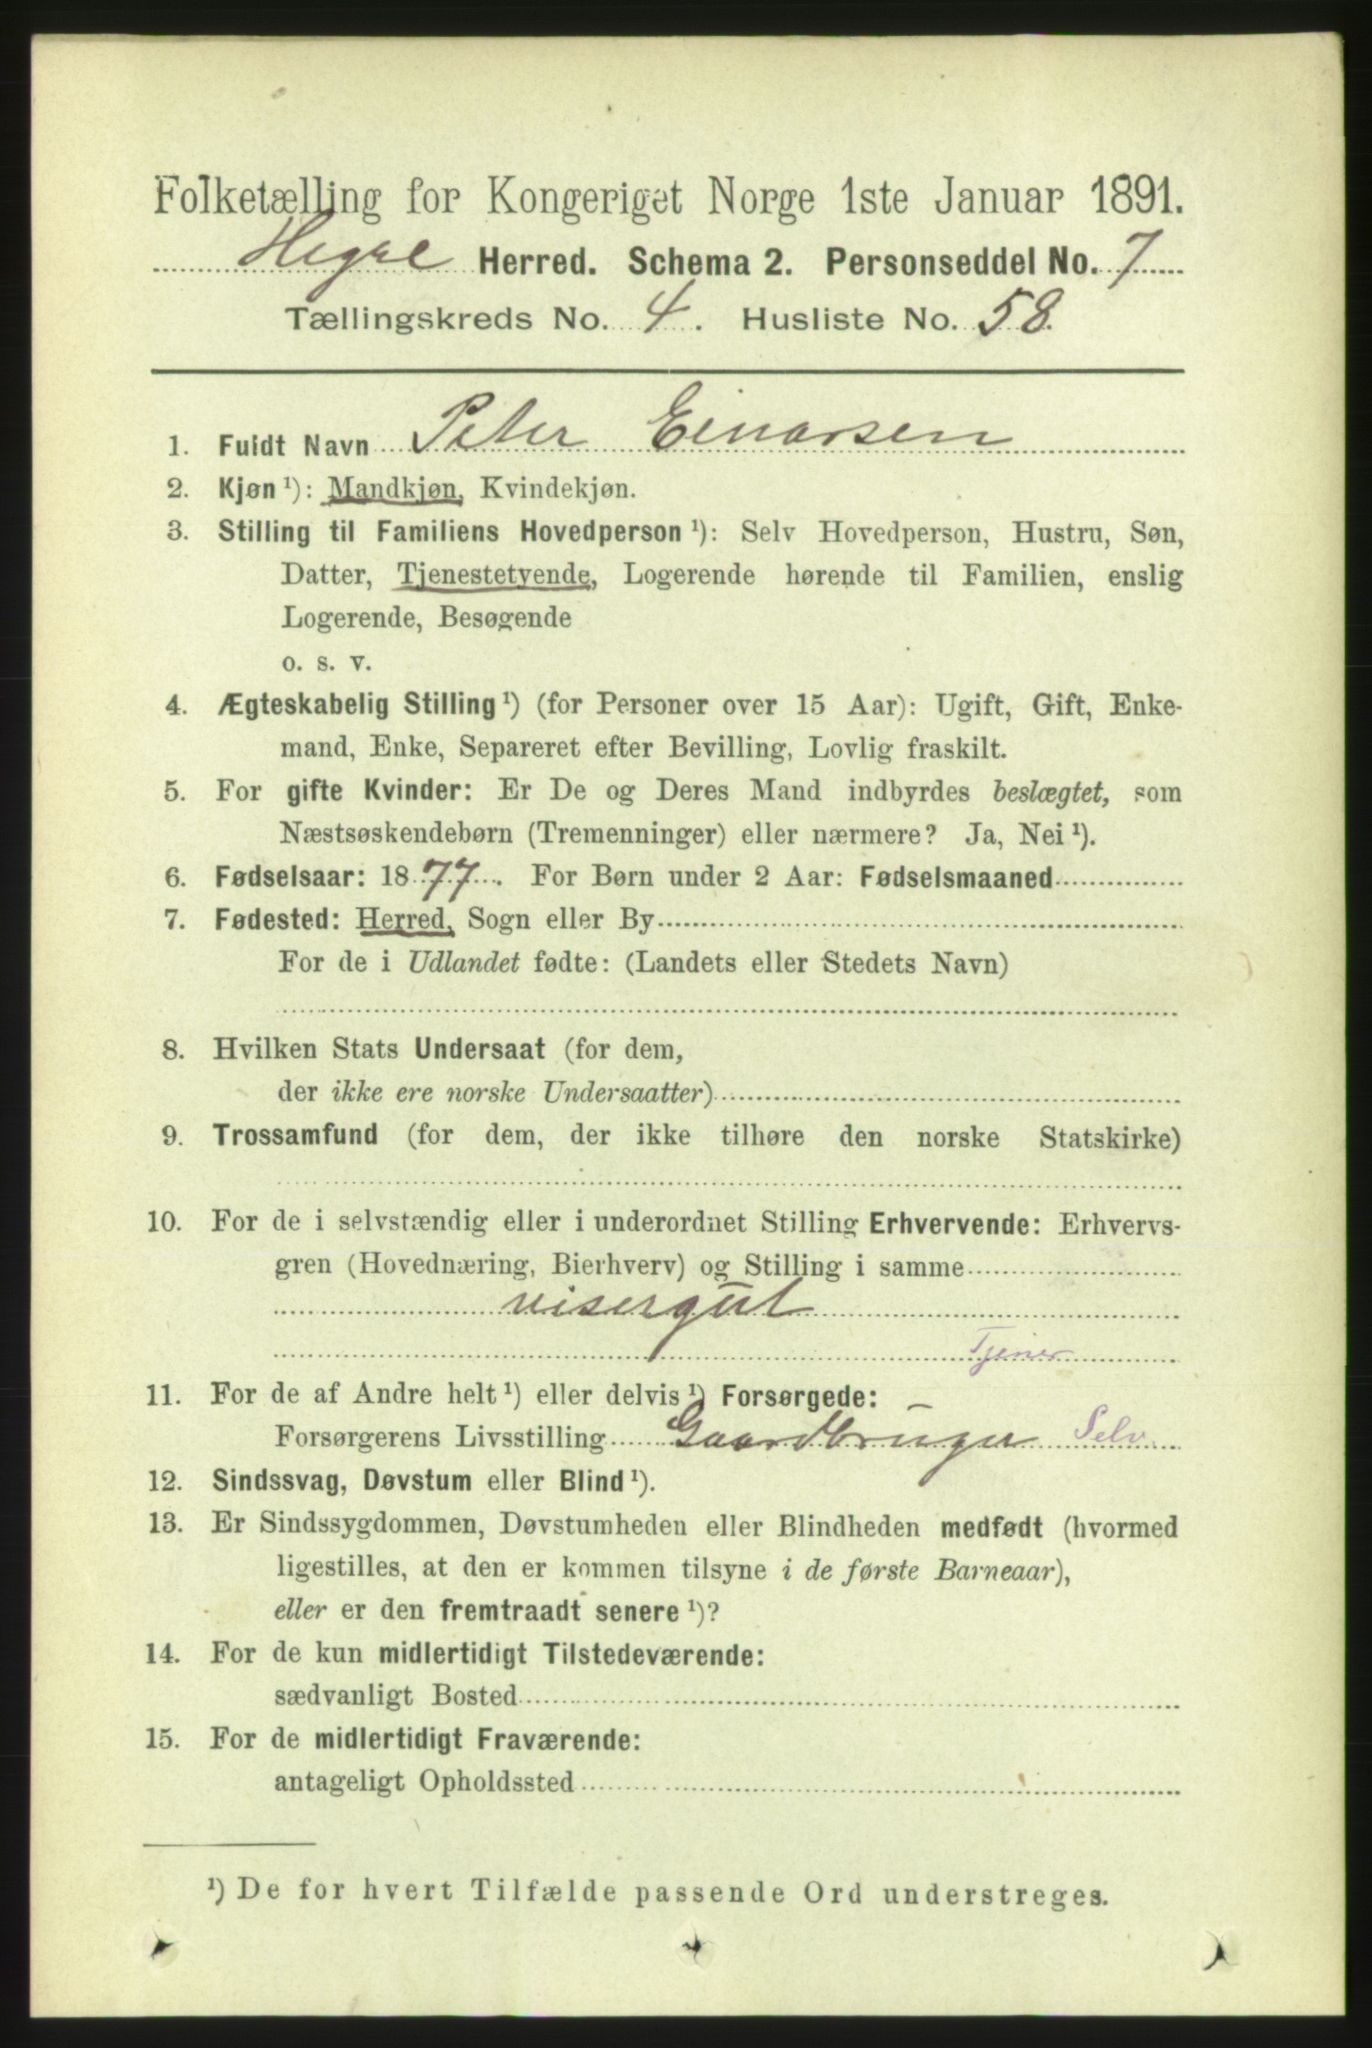 Folketælling for Kongeriget Norge 1ste Januar 1891.
Hegre Herred. Schema 2. Personseddel No. 7
Tællingskreds No. 4. Husliste No. 58.
1. Fuldt Navn Peter Einarsen
2. Kjøn ¹): Mandkjøn, Kvindekjøn.
3. Stilling til Familiens Hovedperson ¹): Selv Hovedperson, Hustru, Søn,
Datter, Tjenestetyende, Logerende hørende til Familien, enslig
Logerende, Besøgende
o. s. v.
4. Ægteskabelig Stilling ¹) (for Personer over 15 Aar): Ugift, Gift, Enke-
mand, Enke, Separeret efter Bevilling, Lovlig fraskilt.
5. For gifte Kvinder: Er De og Deres Mand indbyrdes beslægtet, som
Næstsøskendebørn (Tremenninger) eller nærmere? Ja, Nei ¹).
6. Fødselsaar: 1877. For Børn under 2 Aar: Fødselsmaaned
7. Fødested: Herred, Sogn eller By
For de i Udlandet fødte: (Landets eller Stedets Navn)
8. Hvilken Stats Undersaat (for dem,
der ikke ere norske Undersaatter)
9. Trossamfund (for dem, der ikke tilhøre den norske Statskirke)
10. For de i selvstændig eller i underordnet Stilling Erhvervende: Erhvervs-
gren (Hovednæring, Bierhverv) og Stilling i samme
visergut
Tjener
11. For de af Andre helt ¹) eller delvis ¹) Forsørgede:
Forsørgerens Livsstilling Gaardbruger Selv.
12. Sindssvag, Døvstum eller Blind ¹).
13. Er Sindssygdommen, Døvstumheden eller Blindheden medfødt (hvormed
ligestilles, at den er kommen tilsyne i de første Barneaar),
eller er den fremtraadt senere ¹)?
14. For de kun midlertidigt Tilstedeværende:
sædvanligt Bosted
15. For de midlertidigt Fraværende:
antageligt Opholdssted
¹) De for hvert Tilfælde passende Ord understreges.